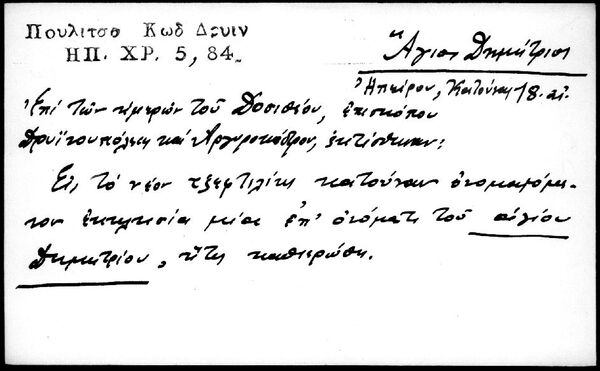 Πουλιτσα Κωδ Δρυιν
ΗΠ. ΧΡ. 5, 84.
Ἅγιος Δημήτριος
Ἠπείρου, Κατούνα 18. αἰ.
Ἐπί τῶν ἡμερῶν τοῦ Δοσιθέου, ἐπισκόπου
Δρυϊνουπόλεως καί Ἀργυροκάστρου, ἐκτίσθησαν:
Εἰς τό νέον τζεφτιλίκι κατούναν ὀνομαζόμε-
νον ἐκκλησία μία ἐπ' ὀνόματι τοῦ ἁγίου
Δημητρίου, ἥτις καθιερώθη.